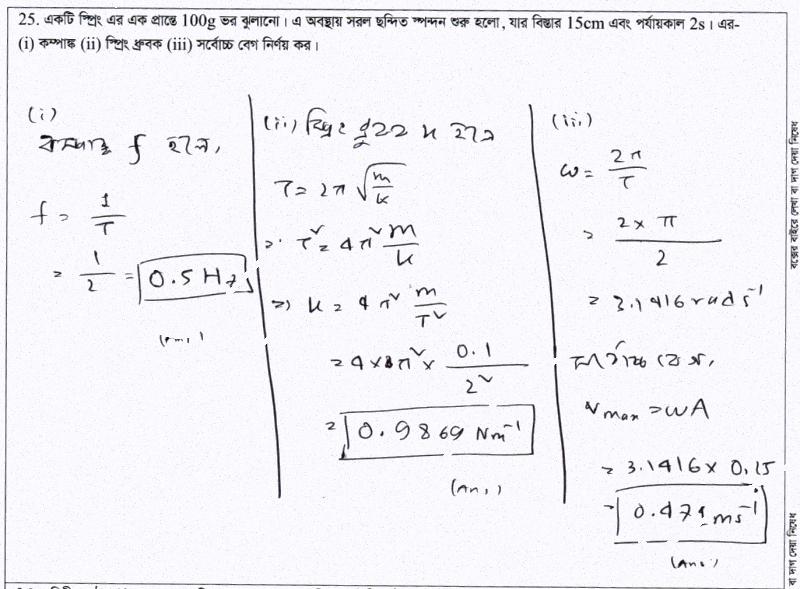 25. একটি স্প্রিং এর এক প্রান্তে 100g ভর ঝুলানো। এ অবস্থায় সরল ছন্দিত স্পন্দন শুরু হলো, যার বিস্তার 15cm এবং পর্যায়কাল 2s। এর-
(i) কম্পাঙ্ক (ii) স্প্রিং ধ্রুবক (iii) সর্বোচ্চ বেগ নির্ণয় কর।
(i)
কম্পাঙ্ক f হলে,
f = 1/T
= 1/2 = 0.5 Hz
(Ans)
(ii) স্প্রিং ধ্রুবক k হলে
T = 2π √(m/k)
⇒ T² = 4π² m/k
⇒ k = 4π² m/T²
= 4×π² × 0.1/2²
= 0.9869 Nm⁻¹
(Ans)
(iii)
ω = 2π/T
= 2×π/2
= 3.1416 rad s⁻¹
সর্বোচ্চ বেগ,
v max = ωA
= 3.1416 × 0.15
= 0.471 ms⁻¹
(Ans)
বক্সের বাইরে লেখা বা দাগ দেয়া নিষেধ
বা দাগ দেয়া নিষেধ